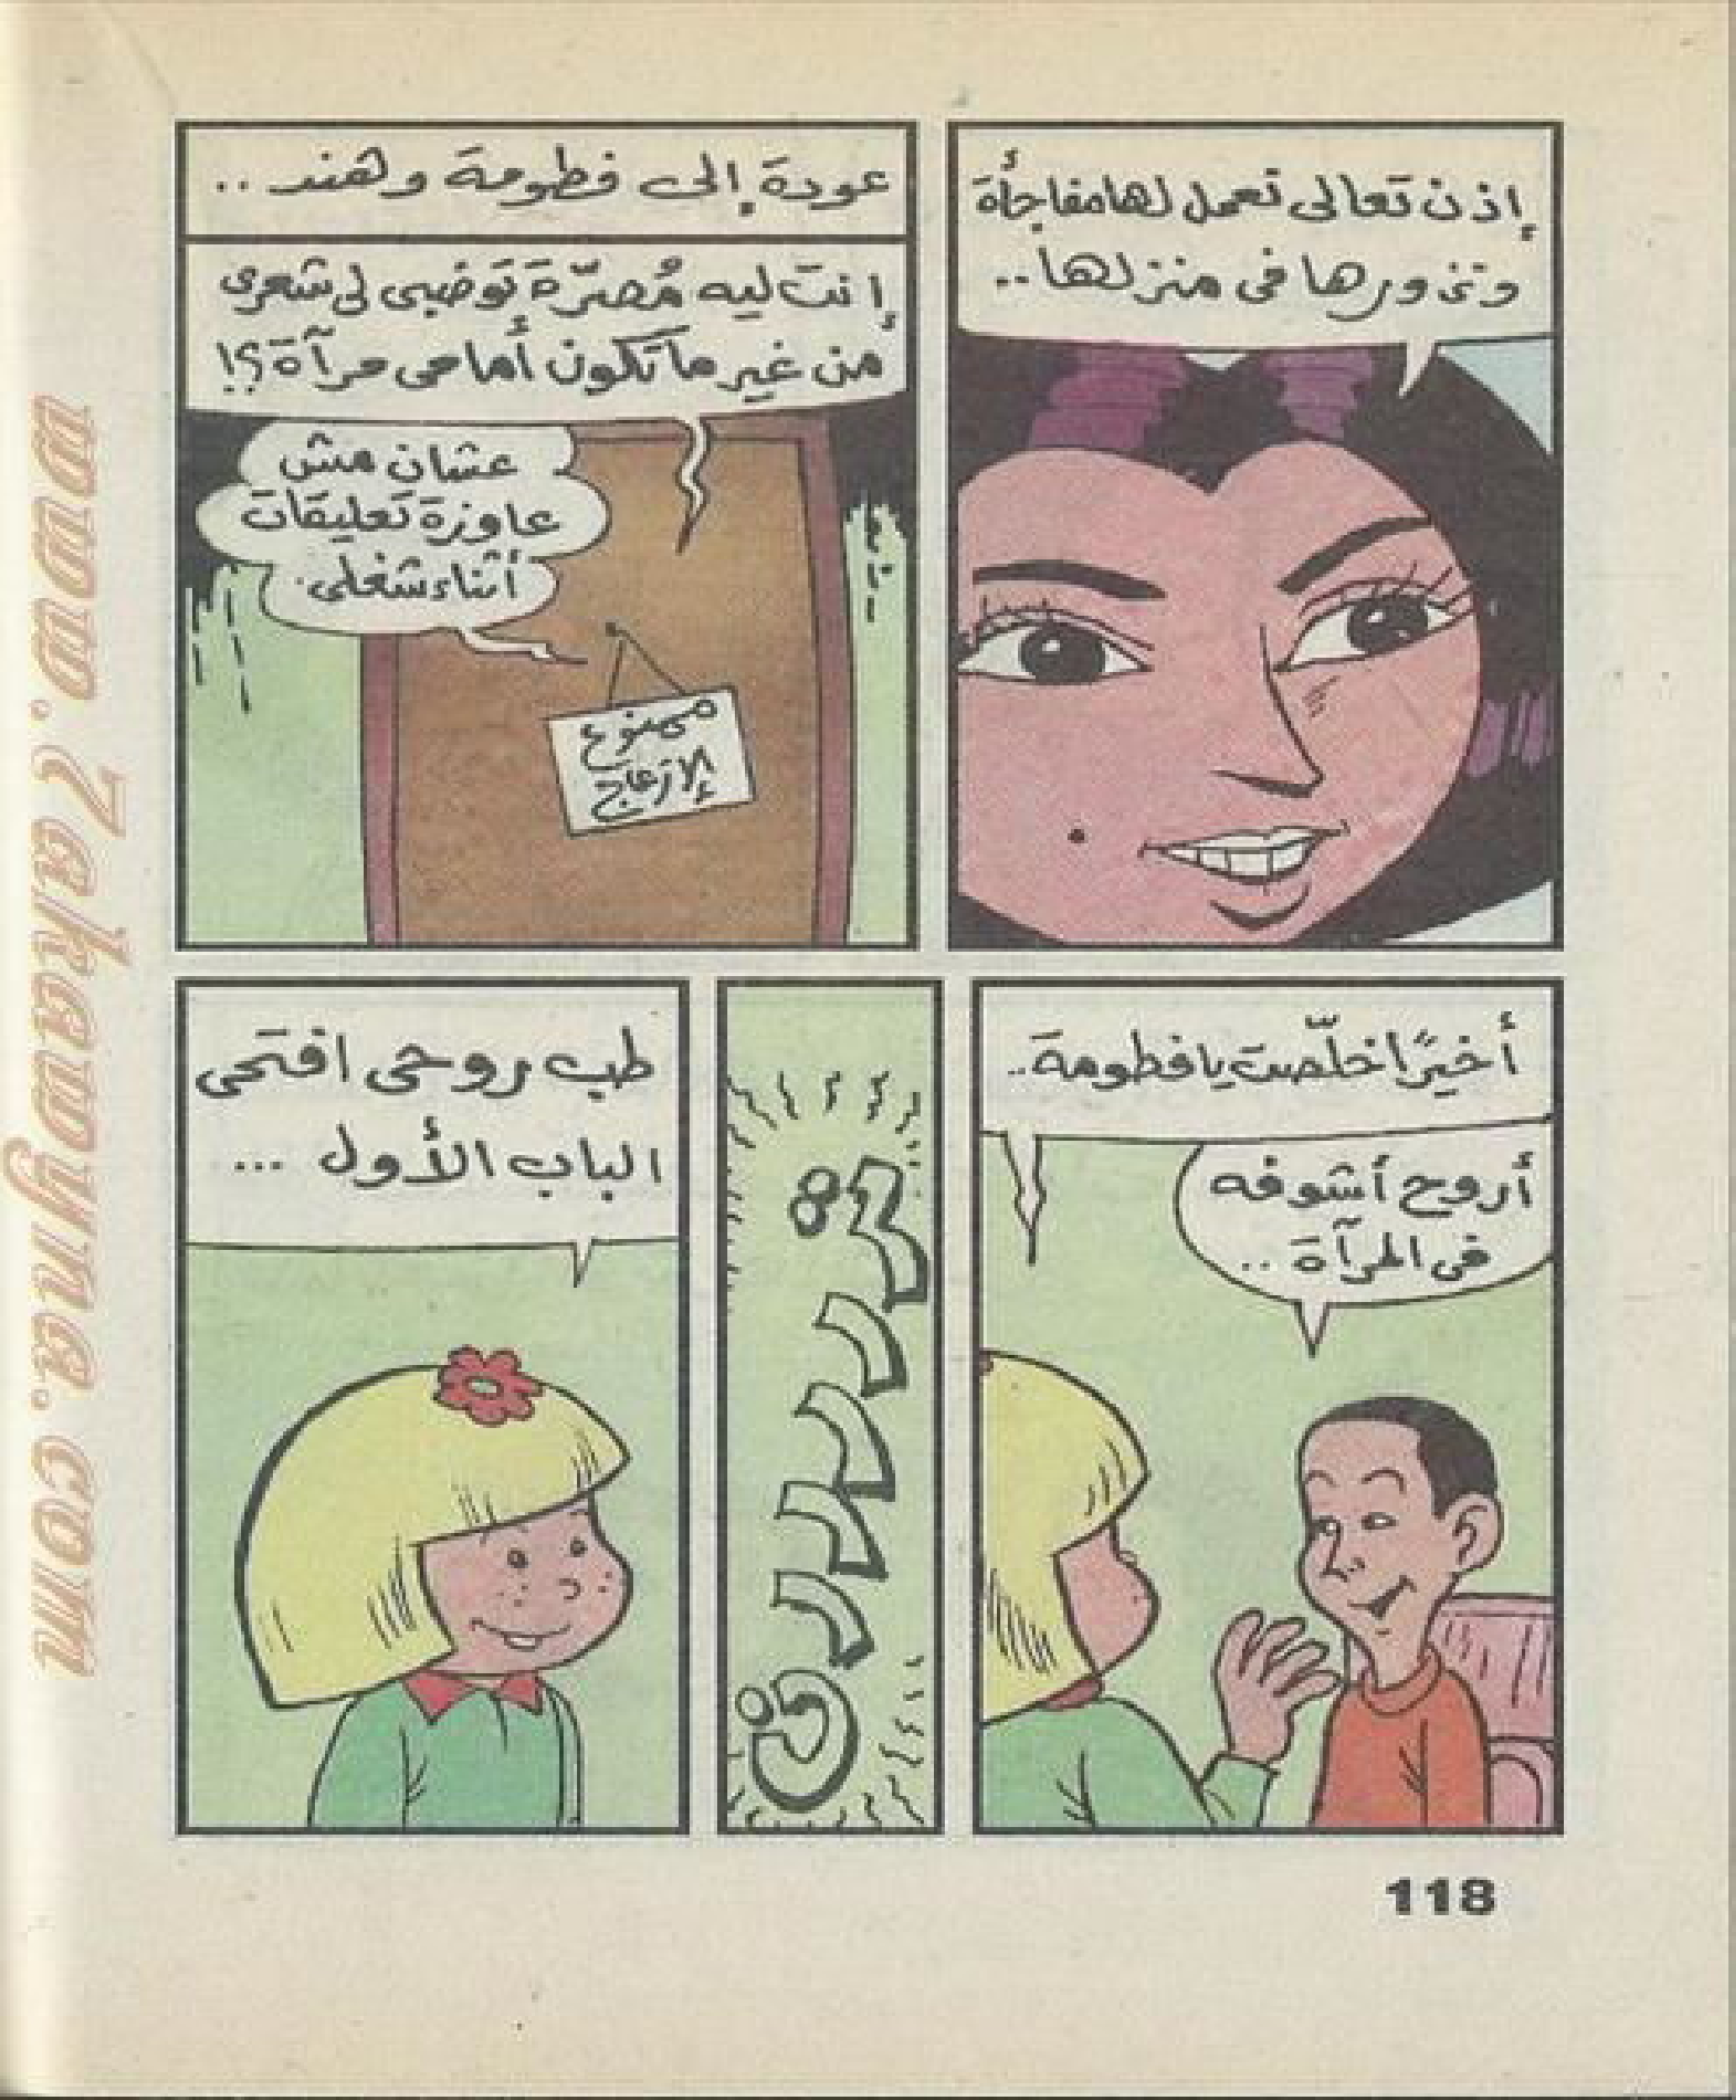 إذن تعالى نعمل لها مفاجأة
ونزورها فى منزلها..
عودة إلى فطومة وهند..
إنت ليه مُصرّة توضبى لى شعرى
من غير ما تكون أمامى مرآة؟!
عشان مش
عاوزة تعليقات
أثناء شغلى.
ممنوع
الإزعاج
أخيرًا خلّصت يا فطومة..
أروح أشوفه
فى المرآة..
تررررررن
طب روحى افتحى
الباب الأول...
118
www.7akawyna.com